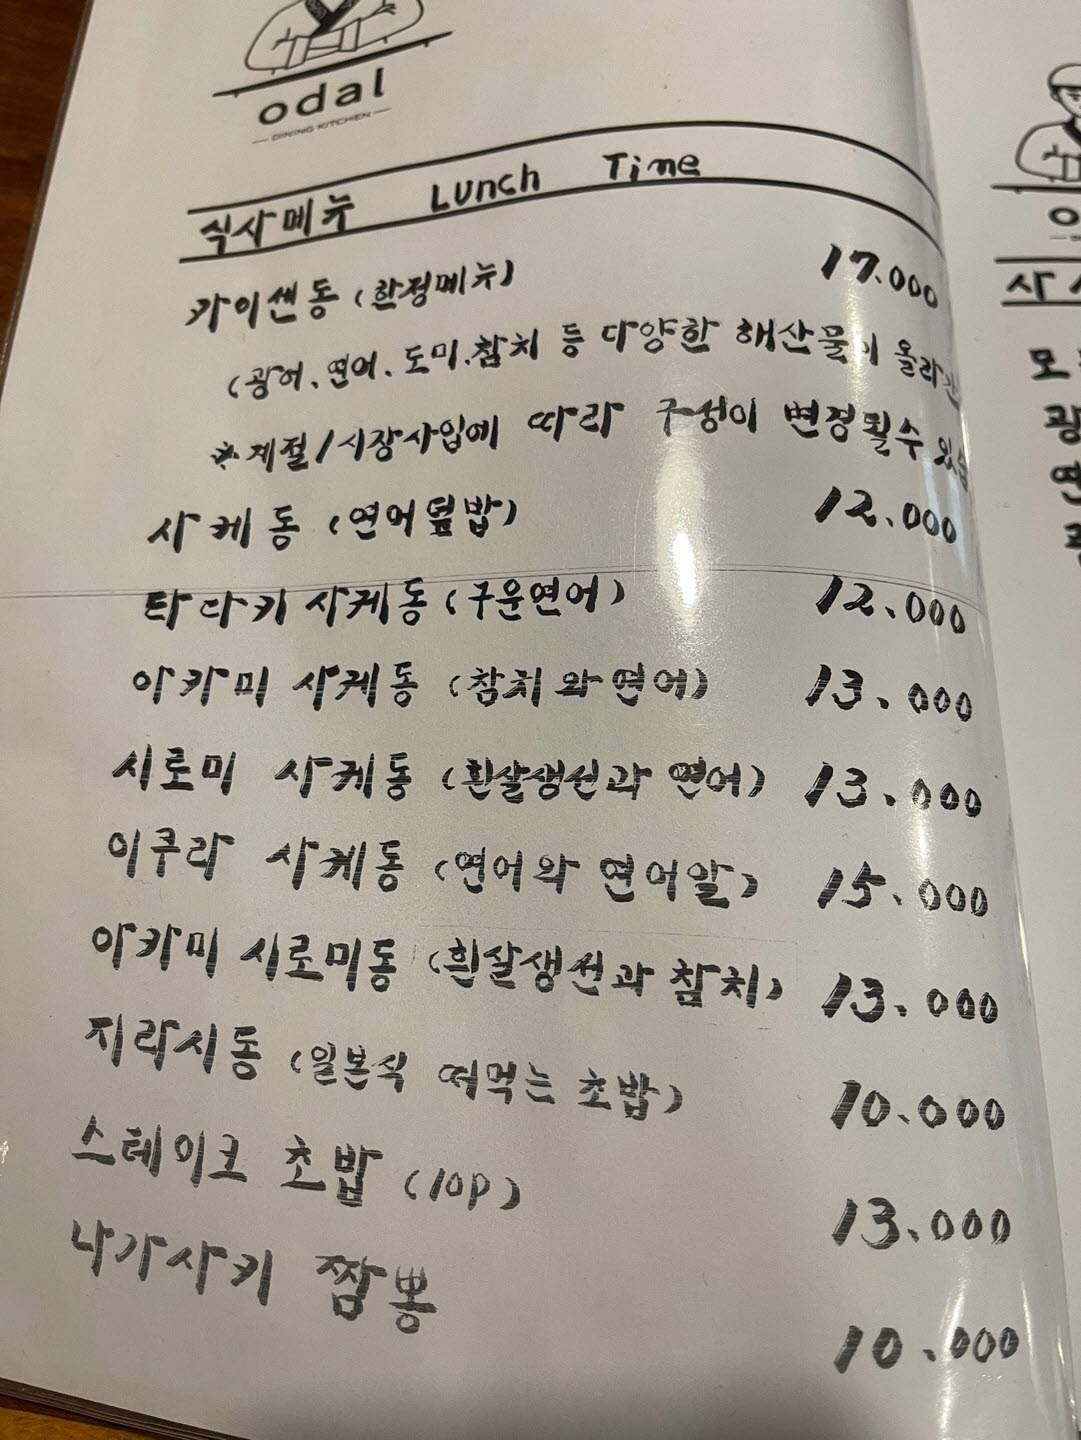 odal
DINING KITCHEN
식사메뉴 Lunch Time
카이센동 (한정메뉴) 17.000
(광어, 연어, 도미, 참치 등 다양한 해산물이 올라간
※계절/시장사입에 따라 구성이 변경될수 있습
사케동 (연어덮밥) 12.000
타다키 사케동 (구운연어) 12.000
아카미 사케동 (참치와 연어) 13.000
시로미 사케동 (흰살생선과 연어) 13.000
이쿠라 사케동 (연어와 연어알) 15.000
아카미 시로미동 (흰살생선과 참치) 13.000
지라시동 (일본식 떠먹는 초밥) 10.000
스테이크 초밥 (10p) 13.000
나가사키 짬뽕 10.000